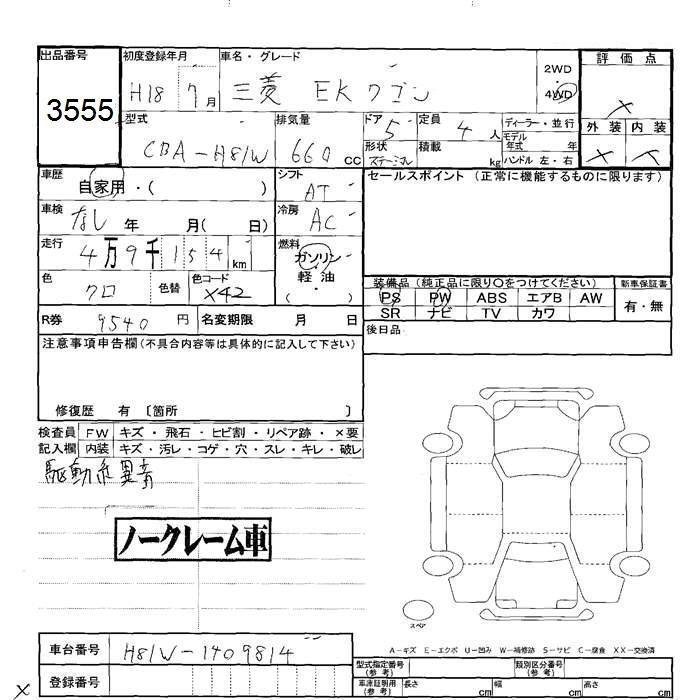 出品番号 初度登録年月 車名・グレード 評価点
3555 H18 7月 三菱 EKワゴン 2WD 4WD ×
型式 排気量 ドア 定員 ディーラー・並行 外装 内装
CBA-H81W 660cc 5 4人 モデル年式 年 × ×
形状 ステーション 積載 kg ハンドル 左・右
車歴 自家用・( ) シフト AT セールスポイント (正常に機能するものに限ります)
車検 なし 年 月( 日) 冷房 AC
走行 4万9千154km 燃料 ガソリン・軽油・( )
色 クロ 色替 色コード X42
装備品(純正品に限り○をつけてください) 新車保証書
PS PW ABS エアB AW 有・無
SR ナビ TV カワ
R券 9540円 名変期限 月 日 後日品
注意事項申告欄(不具合内容等は具体的に記入して下さい)
修復歴 有 〔箇所 〕
検査員 FW キズ・飛石・ヒビ割・リペア跡・×要
記入欄 内装 キズ・汚レ・コゲ・穴・スレ・キレ・破レ
駆動系異音
ノークレーム車
スペア
A-キズ E-エクボ U-凹み W-補修跡 S-サビ C-腐食 XX-交換済
車台番号 H81W-1409814
型式指定番号(参考) 類別区分番号(参考)
× 登録番号 車庫証明用(参考) 長さ cm 幅 cm 高さ cm